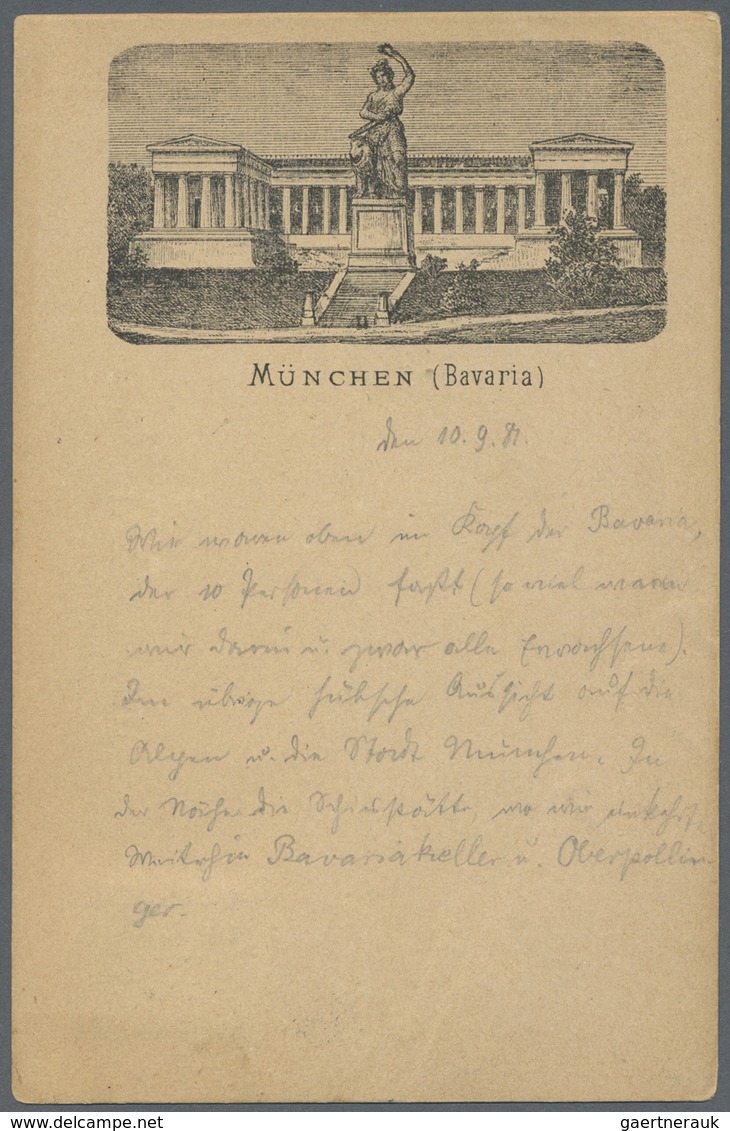 MÜNCHEN (Bavaria)
den 10. 9. 81.
Wir waren oben im Kopf der Bavaria,
der 10 Personen faßt (so viel waren
wir darin u. zwar alle Erwachsene).
Im übrige hübsche Aussicht auf die
Alpen u. die Stadt München. In
der Nähe die Schiesstätte, wo wir einkehrt.
Weiterhin Bavariakeller u. Oberpollin-
ger.
gaertnerauk